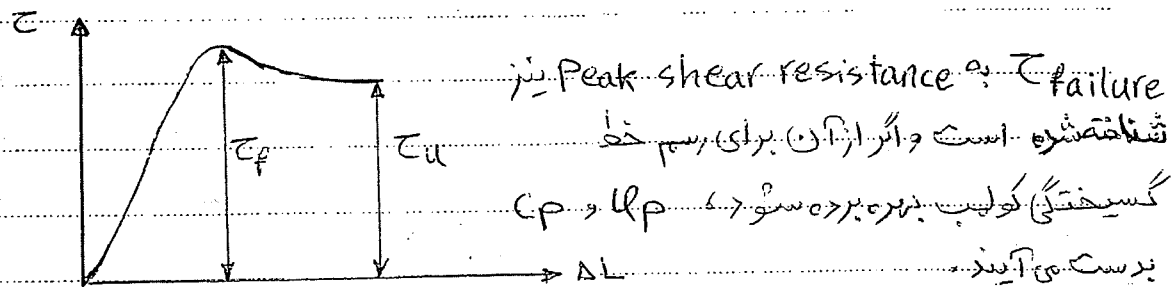 τ
τfailure به Peak shear resistance نیز
شناخته شده است و اگر از آن برای رسم خط
τf
τu
گسیختگی کولمب بهره برده شود، φp و Cp
ΔL
بدست می‌آیند.